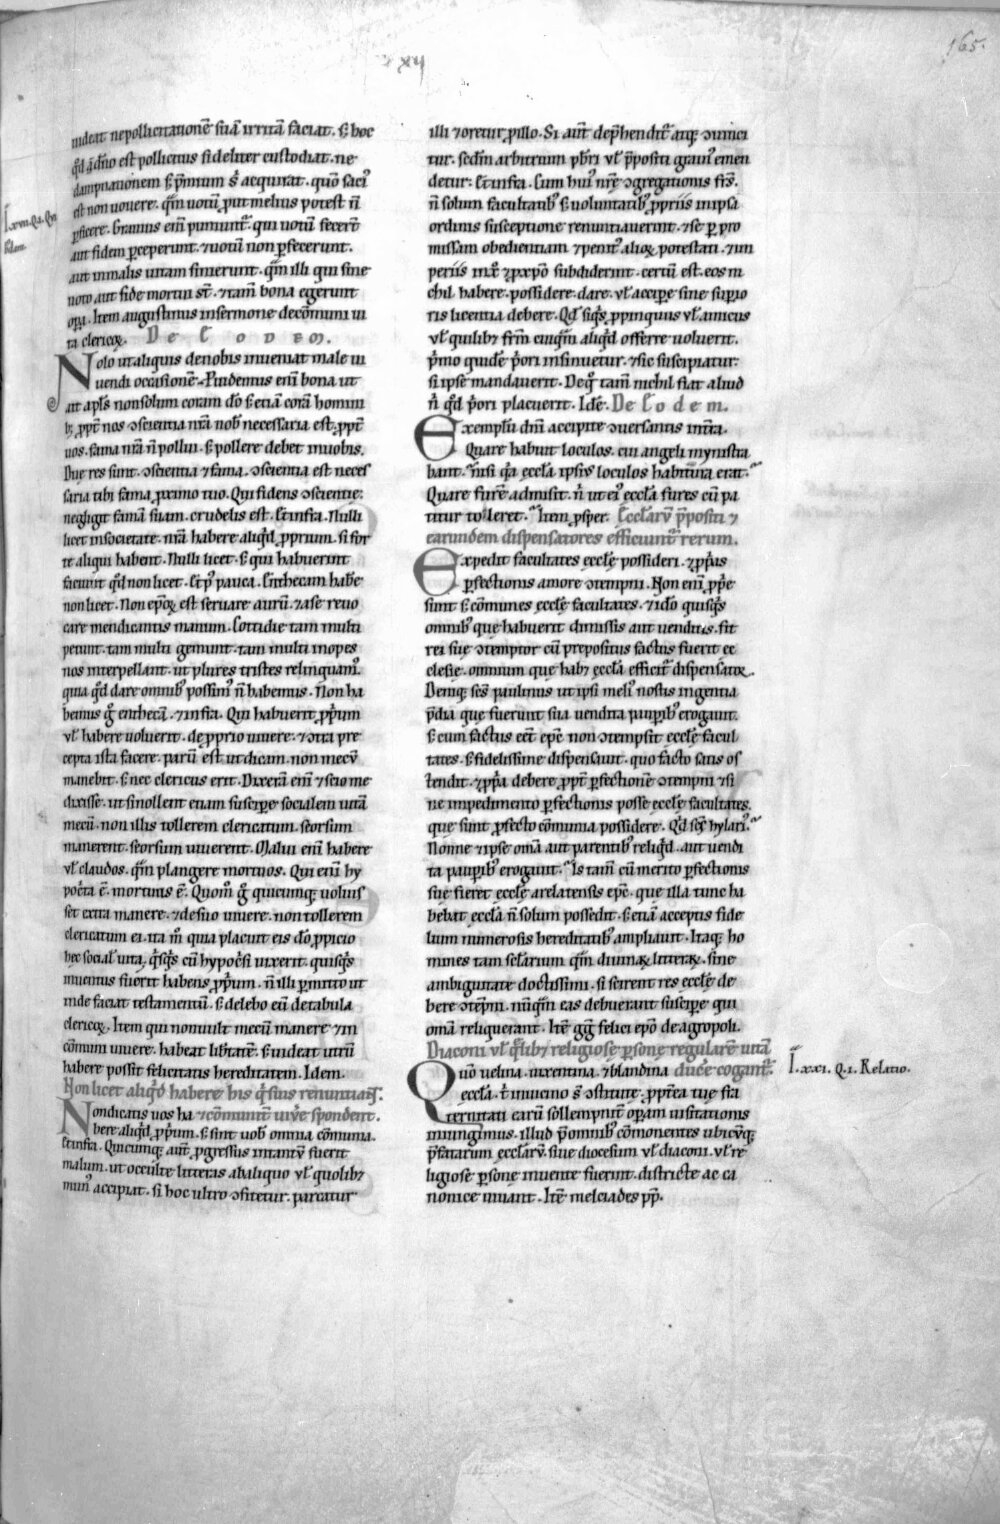 165.
xii
uideat ne pollicitationē suā irritā faciat. s; hoc
qd̄ ad̄ dn̄o est pollicitus fideliter custodiat. ne
dampnationem s; p̄mium s̄ acquirat. quō faci'
est non uouere. qm̄ uotū put melius potest n̄
ꝑficere. Grauius eni puniunt̄ qui uotū fecer̄
aut fidem ꝑceperunt. ⁊ uotū non ꝑfecerunt.
aut in malis uitam finierunt. qm̄ illi qui sine
uoto aut fide mortui st̄. ⁊ tam̄ bona egerunt
oꝑa. Item augustinus in sermone de cōmuni ui
ta clericoꝝ. De Eodem.
I. xvii. Q. 1. Qui
fidem.
Nolo ut aliquis de nobis inueniat male ui
uendi occasionē. Prouidemus eni bona ut
ait apls̄ non solum coram dō s; etiā corā homini
b; ꝓpt̄ nos ɔscientia nr̄a nob̄ necessaria est. ꝓpt̄
uos. fama nr̄a n̄ pollui. s; pollere debet in uobis.
Due res sunt. ɔscientia ⁊ fama. ɔscientia est neces
saria tibi fama ꝓximo tuo. Qui fidens ɔscientie.
negligit famā suam. crudelis est. Et infra. Nulli
licet in societate nr̄a habere aliqd̄ ꝓprium. si for
te aliqui habent. Nulli licet. s; qui habuerint
faciunt qd̄ non licet. Et p' pauca. Enthecam hab̄e
non licet. Non ep̄oꝝ est seruare aurū. ⁊ a se reuo
care mendicantis manum. Cottidie tam multi
petunt. tam multi gemunt. tam multi inopes
nos interpellant. ut plures tristes relinquam'.
quia qd̄ dare omnib; possim' n̄ habemus. Non ha
bemus g̊ enthecā. ⁊ infra. Qui habuerit ꝓp̄ium
ul̄ habere uoluerit. de ꝓprio uiuere. ⁊ ɔtra pre
cepta ista facere. parū est ut dicam. non mecū
manebit. s; nec clericus erit. Dixerā eni ⁊ scio me
dixisse. ut si nollent etiam susciꝑe socialem uitā
mecū. non illis tollerem clericatum. seorsum
manerent. seorsum uiuerent. Malui eni habere
ul̄ claudos. qm̄ plangere mortuos. Qui eni hy
poc̄ta ē. mortuus ē. Quom̄ g̊ quicumq; uoluis
set extra manere. ⁊ de suo uiuere. non tollerem
clericatum ei. ita m̊ quia placuit eis dō ꝓpicio
hec social' uita. q̄sq̄s cū hypoc̄si uixerit. quisq̄s
inuentus fuerit habens ꝓp̄ium. n̄ illi ꝑmitto ut
inde faciat testamentū. s; delebo eū de tabula
clericoꝝ. Item qui non uult mecū manere ⁊ in
cōmuni uiuere. habeat lib̄tatē. s; uideat utrū
habere possit felicitatis hereditatem. Idem.
Non licet aliqd̄ habere his q̄ suis renuntiar̄.
Nondicatis uos ha ⁊ cōmunit̄ uiu̅e sponderit.
bere aliqd̄ ꝓp̄ium. s; sint uob̄ omnia cōmunia.
Et infra. Quicumq; aut̄ ꝓgressus in tantū fuerit
malum. ut occulte litteras ab aliquo ul̄ quolib;
mun' accipiat. si hoc ultro ɔfitetur. parcatur
illi ⁊ oretur ꝓ illo. Si aut̄ dep̄hendit̄ atq; ɔuinci
tur. secd̄m arbitrium pb̄ri ul̄ p̄positi grauius emen
detur. Et infra. Cum hui' nr̄e ɔgregationis fr̄s.
n̄ solum facultatib; s; uoluntatib; ꝓpriis in ipsa
ordinis susceptione renuntiauerint. ⁊ se ꝑ pro
missam obedientiam ⁊ penit' alioꝝ potestati. ⁊ im
periis in x̄ ⁊ ꝓ xp̄o subdiderint. certū est. eos ni
chil habere. possidere. dare. ul̄ accipe sine supio
ris licentia debere. Qd̄ siq̄s ꝓpinquus ul̄ amicus
ul̄ quilib; fr̄m cuiq̄m aliqd̄ offerre uoluerit.
p̄mo quidē p̄ori insinuetur. ⁊ sic suscipiatur.
si ipse mandauerit. Deq̄ tam̄ nichil fiat aliud
n̄ qd̄ p̄ori placuerit. Idē. De Eodem.
Exemplū dn̄i accipite ɔuersantis in tr̄a.
Quare habuit loculos. cui angeli mynistra
bant. nisi q̄a eccl̄a ipsius loculos habitura erat.
Quare furē admisit. n̄ ut ei' eccl̄a fures cū pa
titur tolleret. Item ꝓsper. Eccl̄aꝝ p̄positi ⁊
earundem dispensatores efficiunt̄ rerum.
Expedit facultates eccl̄ę possideri. ⁊ ꝓp̄ias
ꝑfectionis amore ɔtempni. Non eni ꝓp̄ie
sunt s; cōmunes eccl̄ę facultates. ⁊ idō quisq̄s
omnib; que habuerit dimissis aut uenditis. fit
rei sue ɔtemptor cū prepositus factus fuerit ec
clesie. omnium que hab; eccl̄a efficit̄ dispensator.
Deniq; sc̄s paulinus ut ipsi meli' nostis ingentia
p̄dia que fuerunt sua uendita paupib; erogauit.
s; cum factus eet̄ ep̄c non ɔtempsit eccl̄ę facul
tates. s; fidelissime dispensauit. quo facto satis os
tendit. ⁊ ꝓp̄a debere ꝓpt̄ ꝑfectionē ɔtempni ⁊ si
ne impedimento ꝑfectionis posse eccl̄ę facultates.
que sunt ꝓfecto cōmunia possidere. Qd̄ sc̄s hylari'.
Nonne ⁊ ipse omīa aut parentib; reliqd̄. aut uendi
ta paupib; erogauit. Is tam̄ cū merito ꝑfectionis
sue fieret eccl̄ę arelatensis ep̄c. que illa tunc ha
bebat eccl̄a n̄ solum possedit. s; etiā acceptis fide
lium numerosis hereditatib; ampliauit. Itaq; ho
mines tam sclarium qm̄ diuinaꝝ litteraꝝ. sine
ambiguitate doctissimi. si scirent res eccl̄ę de
bere ɔtēpni. nūq̄m eas debuerant susciꝑe qui
omīa reliquerant. Itē gg̅ felici ep̄o de agropoli.
Diaconi ul̄ q̄lib; religiose ꝑsone regularē uitā
ducere cogant̄.
Quō uelina. iuxentina. ⁊ blandina
eccl̄a. t̄ in uicino s̄ ɔstitute. ꝓpt̄ea tue fra
ternitati earū sollempnit̄ oꝑam uisitationis
iniungimus. illud p̄ omnib; cōmonentes ubicūq;
p̄fatarum eccl̄arū. siue diocesum ul̄ diaconi. ul̄ re
ligiose ꝑsone inuente fuerint. districte ac ca
nonice uiuant. Itē melciades pp̄.
I. xxi. Q. 1. Relatio.